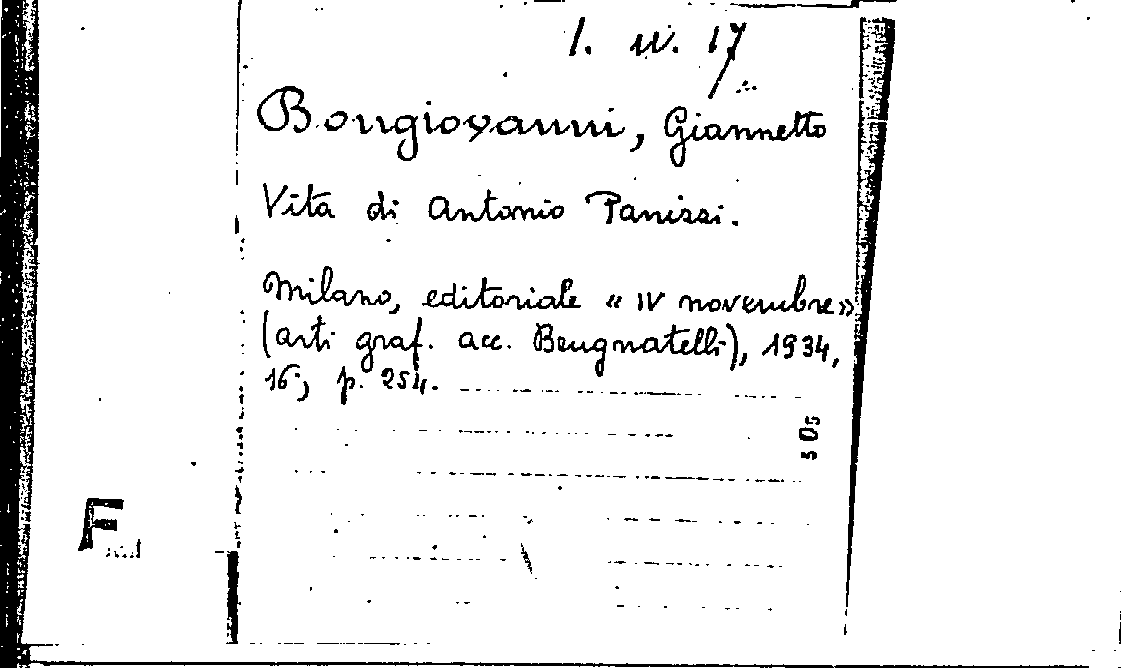 1. IV. 17
Bongiovanni, Giannetto
Vita di Antonio Panizzi.
Milano, editoriale « IV novembre»
(arti graf. acc. Beugnatelli), 1934,
16°, p. 254.
505
F